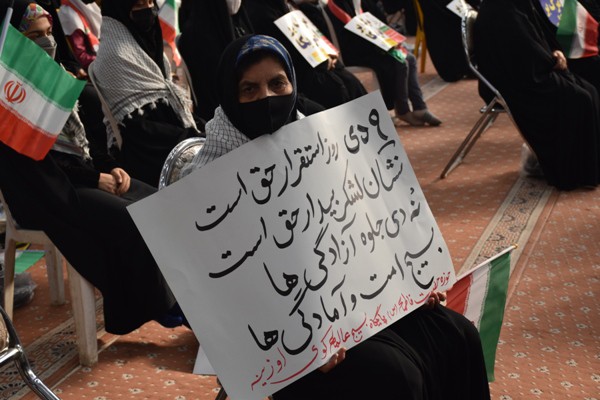 ۹ دی روز استقرار حق است
نشان لشکر بیدار حق است
نه دی جلوه آزادگی ها
بسیج امت و آمادگی ها
حوزه حضرت پایگاه بسیج کوی اوزینه